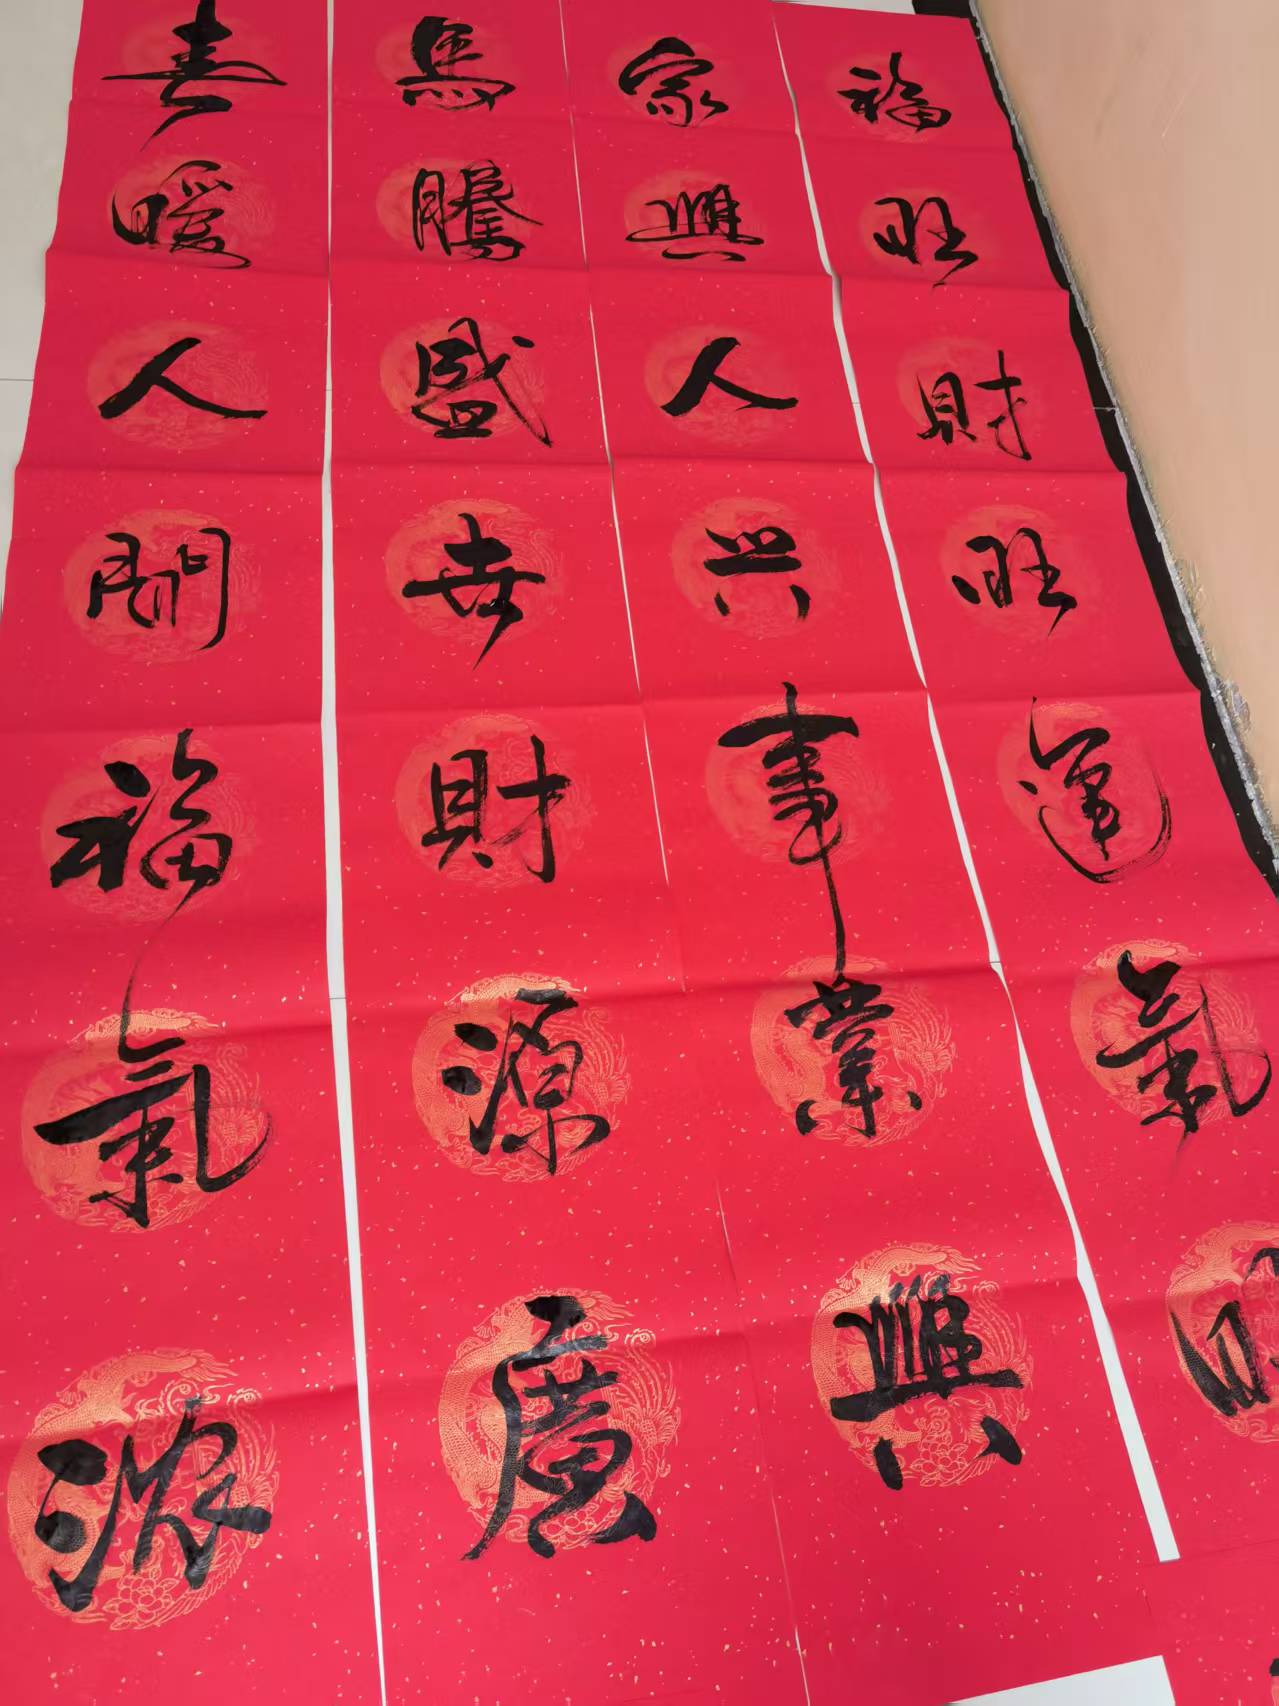 福旺財旺運氣
家興人兴事業興
馬騰盛世財源廣
春暖人間福氣濃